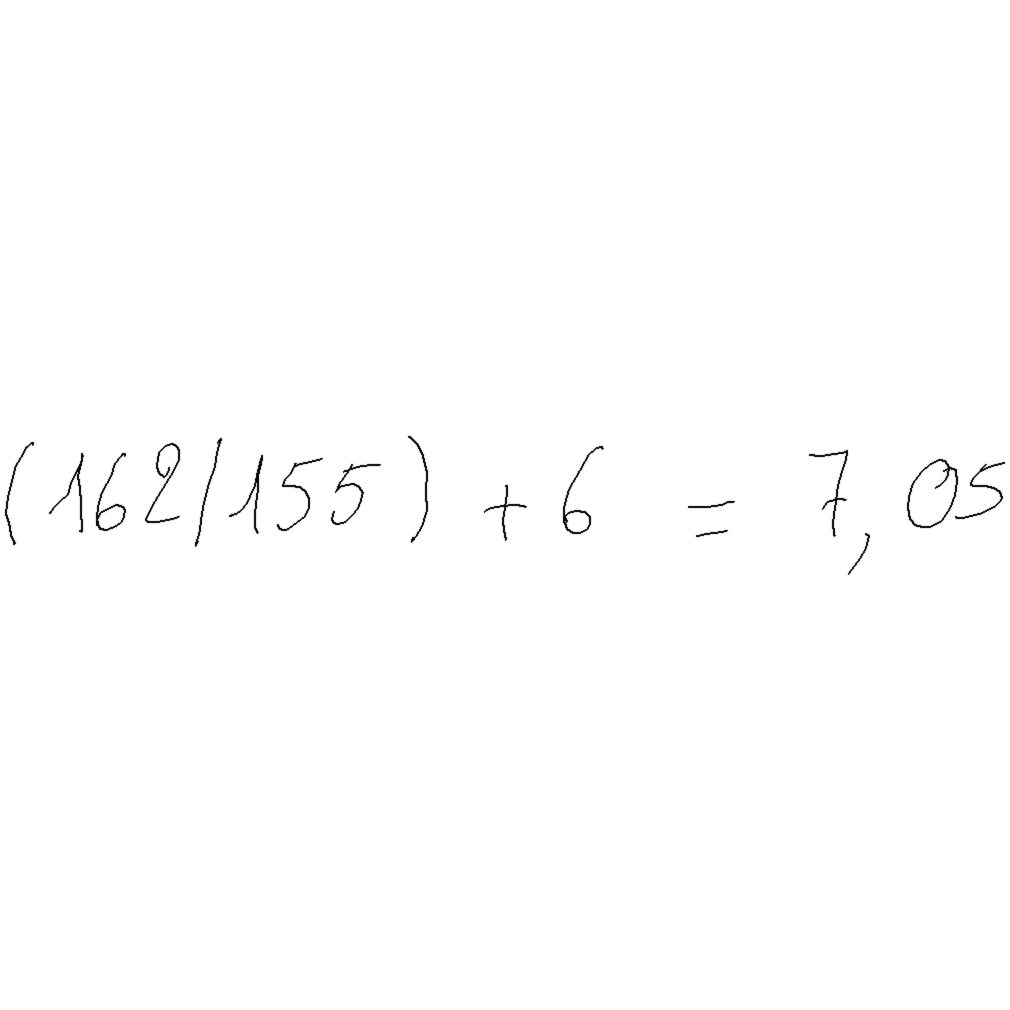 (162/155) + 6 = 7,05